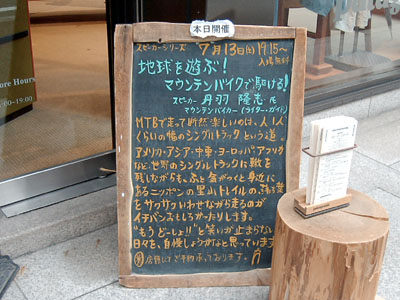 本日開催
スピーカーシリーズ 7月13日(土) 19:15〜
入場無料
地球を遊ぶ!
マウンテンバイクで駆ける!
スピーカー 丹羽 隆志 氏
マウンテンバイカー(ライター・ガイド)
MTBで走って断然楽しいのは、人1人
くらいの幅のシングルトラックという道。
アメリカ・アジア・中東・ヨーロッパ・アフリカ
など世界のシングルトラックに轍を
残しながらも、ふと気がつくと身近に
あるニッポンの里山トレイルの、落ち葉
をサクサクいわせながら走るのが
イチバンおもしろかったりします。
"もうどーしょ!!"と笑いが止まらない
日々を、自慢しようかなと思っています
店頭にてご予約承っております。
ore Hours
–19:00